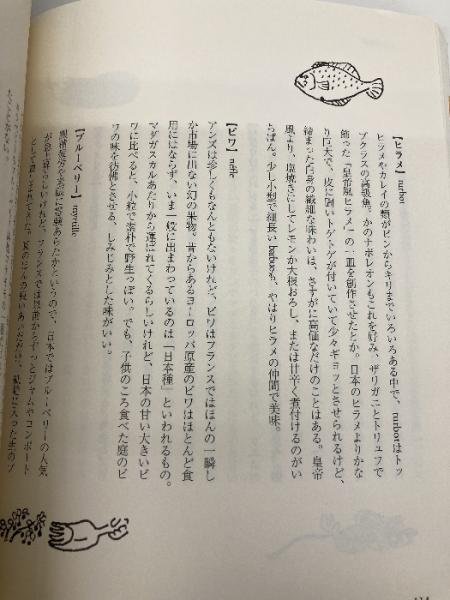 【ヒラメ】 turbot
ヒラメやカレイの類がピンからキリまでいろいろある中で、turbotはトッ
プクラスの高級魚。かのナポレオンもこれを好み、ザリガニとトリュフで
飾った「皇帝風ヒラメ」の一皿を創作させたとか。日本のヒラメよりかな
り巨大で、皮に固いトゲトゲが付いていて少々ギョッとさせられるけど、
締まった白身の繊細な味わいは、さすがに高価なだけのことはある。皇帝
風より、塩焼きにしてレモンか大根おろし、または甘辛く煮付けるのがい
ちばん。少し小型で細長い barbueも、やはりヒラメの仲間で美味。
【ビワ】 nèfle
アンズは珍しくもなんともないけれど、ビワはフランスではほんの一瞬し
か市場に出ない幻の果物。昔からあるヨーロッパ原産のビワはほとんど食
用にはならず、いま一般に出まわっているのは「日本種」といわれるもの。
マダガスカルあたりから運ばれてくるらしいけれど、日本の甘い大きいビ
ワに比べると、小粒で素朴で野生っぽい。でも、子供のころ食べた庭のビ
ワの味を彷彿とさせる、しみじみとした味がいい。
【ブルーベリー】 myrtille
眼精疲労や老眼に効験あらたかというので、日本ではブルーベリーの人気
が急上昇らしいけれど、フランスでは昔からずっとジャムやコンポート
として